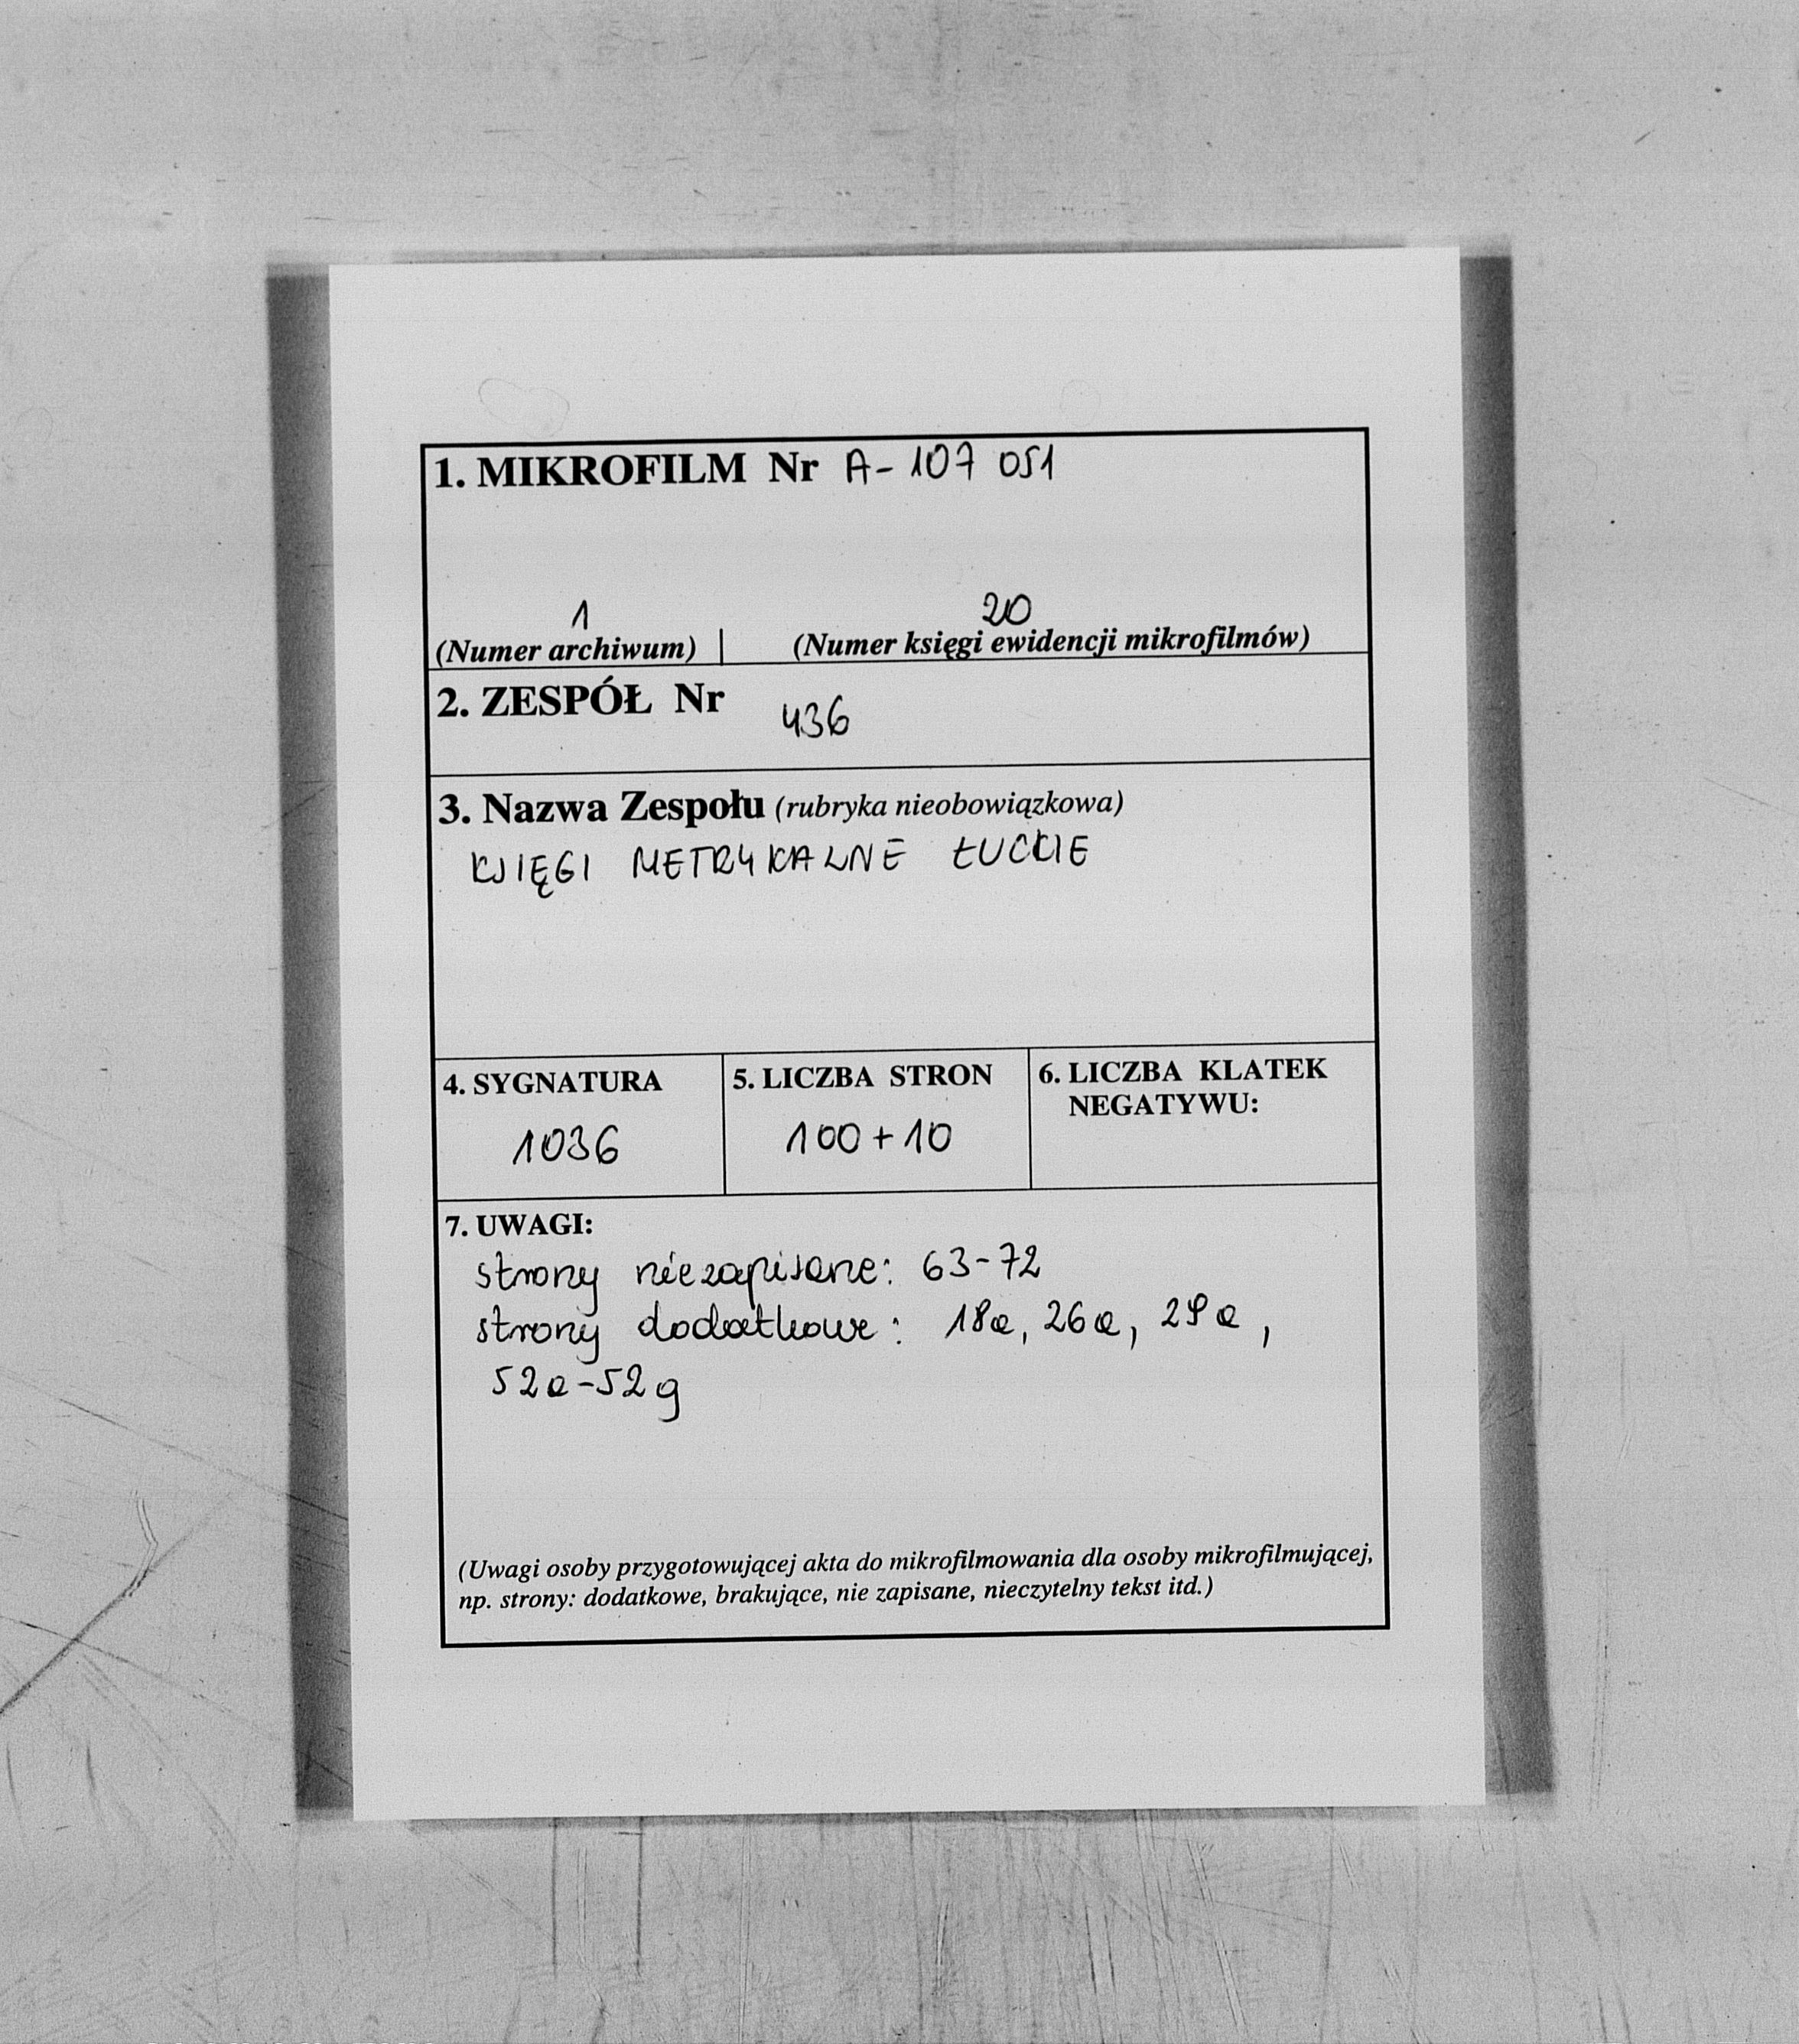 1. MIKROFILM Nr A-107 051
1 20
(Numer archiwum) | (Numer księgi ewidencji mikrofilmów)
2. ZESPÓŁ Nr 436
3. Nazwa Zespołu (rubryka nieobowiązkowa)
KSIĘGI METRYKALNE ŁUCKIE
4. SYGNATURA 5. LICZBA STRON 6. LICZBA KLATEK
NEGATYWU:
1036 100+10
7. UWAGI:
strony niezapisane: 63-72
strony dodatkowe: 18a, 26a, 29a,
52a-52g
(Uwagi osoby przygotowującej akta do mikrofilmowania dla osoby mikrofilmującej,
np. strony: dodatkowe, brakujące, nie zapisane, nieczytelny tekst itd.)